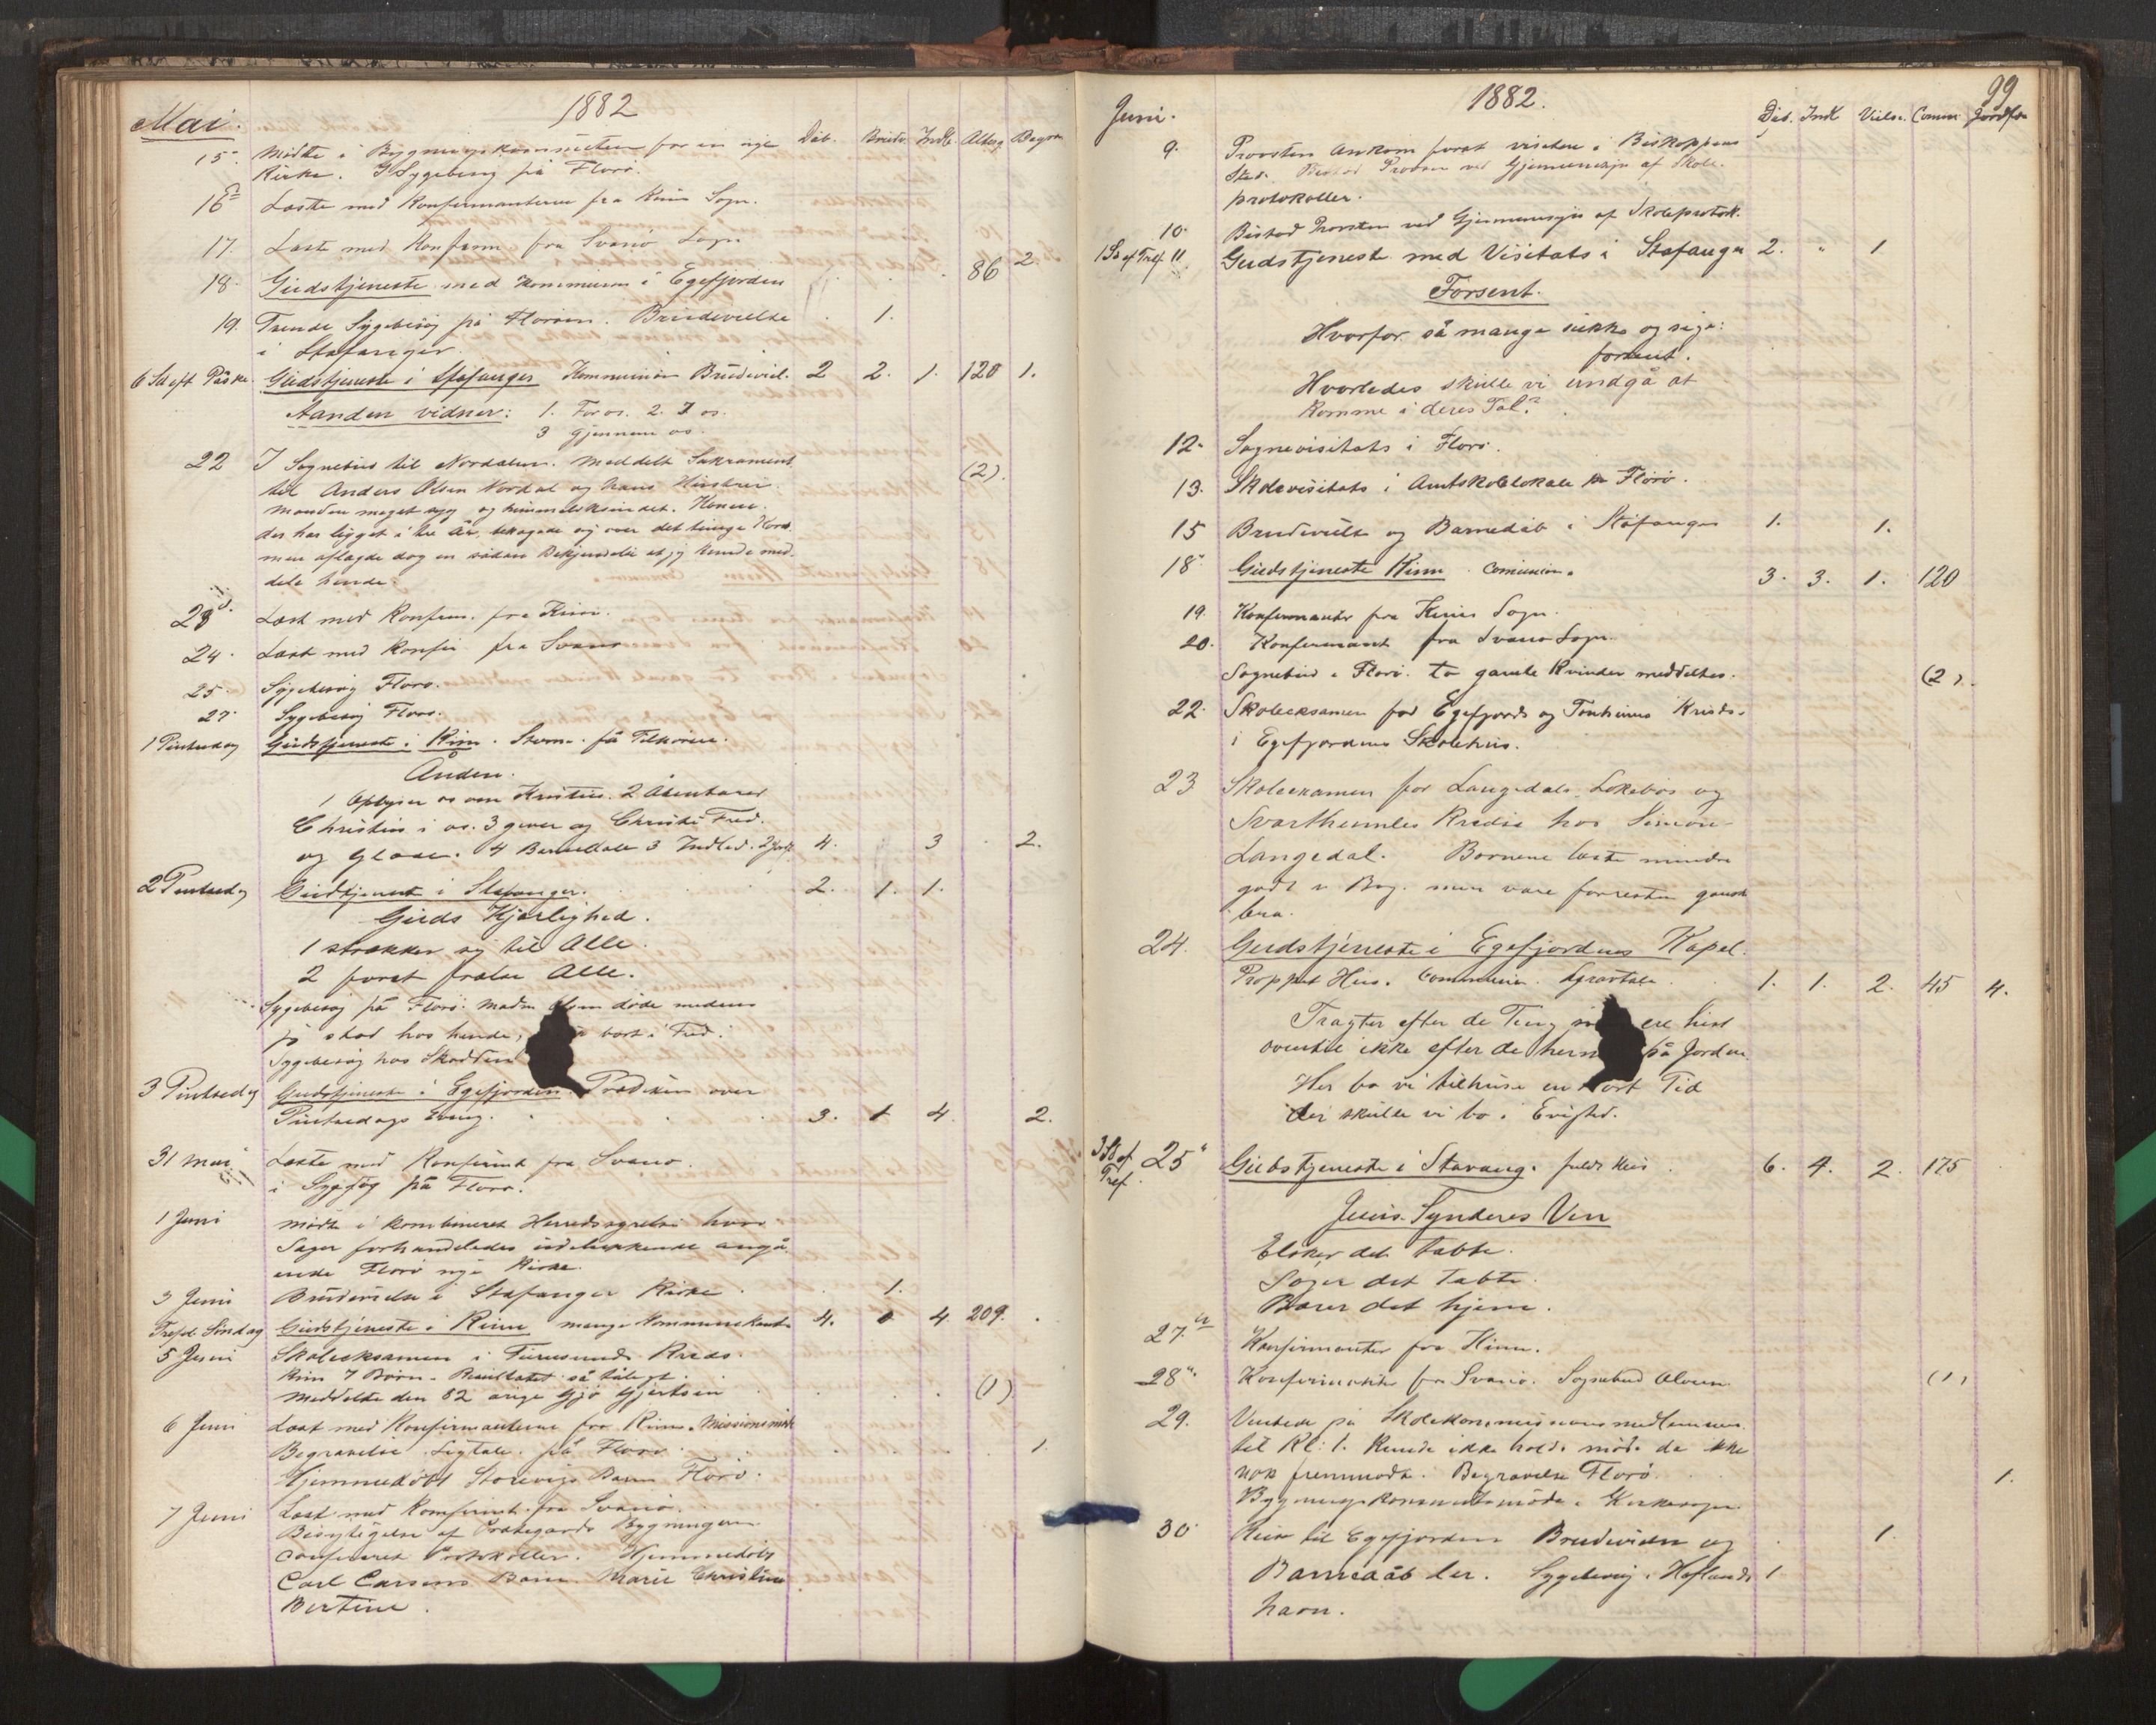 1882
Mai.
Dåb. Brudv. Indl. Alterg. Begra
15. Mødte i Bygningskomiteen for en ny
Kirke. Sygebesøg på Florø.
16 Læste med Konfirmanterne fra Kinn Sogn.
17. Læste med Konfirm fra Svanø Sogn
18. Gudstjeneste med Kommunion i Egefjorden 86 2.
19. Trende Sygebesøg på Florøen. Brudevielse 1.
i Stafanger
6 Sd eft Påske. Gudstjeneste i Stafanger Kommunion Brudeviel. 2 2. 1. 120 1.
Aanden vidner: 1. For os. 2. I os.
3 gjennem os.
22 I Sognebud til Nordalen. Meddelt Sakrament (2).
til Anders Olsen Nordal og hans Hustru.
Manden meget syg og himmelsksindet. Konen.
der har ligget i tre År, beklagede sig over det tunge Kors
men aflagde dog en sådan Bekjendelse at jeg kunde med-
dele hende.
23 Læst med Konfirm. fra Kinn.
24. Læst med Konfir fra Svanø
25. Sygebesøg Florø.
27. Sygebesøg Florø.
1 Pintsedag Gudstjeneste i Kinn. Storm. få Tilhørere.
Ånden.
1 Oplyser os om Kristus. 2 Åbenbarer
Christus i os. 3 giver os Christi Fred.
og Glæde. 4 Barnedåb 3 Indled. 2 Jordf. 4. 3 2.
2 Pintsedag Gudstjeneste i Stafanger. 2. 1. 1.
Guds Kjærlighed.
1 strækker sig til Alle.
2 forst frelse Alle.
Sygebesøg på Florø. Madm Olsen døde medens
jeg stod hos hende, bort i Fred.
Sygebesøg hos
3 Pintsedag Gudstjeneste i Egefjorden. Prædiken over
Pintsedags Evang. 3. 1 4. 2.
31 Mai Læste med Konfirmt fra Svanø.
i Sygebsøg på Florø.
1 Juni Mødte i kombineret Herredsstyrelse hvor
Sager forhandledes udelukkende angå-
ende Florø nye Kirke.
3 Juni Brudevielse i Stafanger Kirke 1.
Trefol. Søndag Gudstjeneste i Kinn mange Kommunikant. 4. 0 4 209.
5 Juni Skoleeksamen i Furusunds Kreds.
kun 7 Børn. Resultatet så tålegt.
Meddelte den 82 årige Gjø Gjertsen (1)
6 Juni Læst med Konfirmanterne fra Kinn. Missionsmøde
Begravelse. Ligtale. på Florø 1.
Hjemmedøbt Storevigs Barn Florø.
7 Juni Læst med Komfirmt. fra Svanø.
Besigtigelse af Præstegårds Bygningen
Confereret Protokoller. Hjemmedøbt
Carl Carsens Barn Marie Christine
Bertine.
99
1882.
Juni.
Dåb. Indl Vielse. Comm Jordfæ
9. Provsten Ankom forat visitere i Biskoppens
Sted. Bistod Provsten ved Gjennemsyn af Skole-
protokoller.
10. Bistod Provsten ved Gjennemsyn af Skoleprotok.
1 Sd ef Tref. 11 Gudstjeneste med Visitats i Stafanger 2. " 1
Forsent.
Hvorfor så mange sukke og sige:
forsent.
Hvorledes skulle vi undgå at
komme i deres Tal?
12. Sognevisitats i Florø.
13. Skolevisitats i Amtskolelokale på Florø.
15 Brudevielse og Barnedåb i Stafanger 1. 1.
18 Gudstjeneste Kinn Comunion. 3. 3. 1. 120
19. Konfirmanter fra Kinns Sogn.
20. Konfirmant fra Svanø Sogn.
Sognebud i Florø. to gamle Kvinder meddeltes. (2).
22. Skoleeksamen for Egefjords og Kreds.
i Egefjordens Skolehus.
23 Skoleexamen for Langedals, Løkebøs og
Svarthumles Kreds hos Simon
Langedal. Børnene læste mindre
godt i Bog. men vare forresten gansk
bra.
24. Gudstjeneste i Egefjordens Kapel.
Proppet Hus. Communion. Gravtale. 1. 1. 2. 45 4.
Tragter efter de Ting ere hist
oventil ikke efter de på Jorden.
Her bo vi tilhuse en kort Tid
der skulle vi bo i Evighed.
3 Sd ef Tref. 25 Gudstjeneste i Stavang. fuldt Hus. 6. 4. 2. 175
Jesus. Synderes Ven
Elsker det tabte.
Søger det tabte.
Bærer det hjem.
27. Konfirmanter fra Kinn.
28 Konfirmanter fra Svanø. Sognebud Alvaren (1)
29. Ventede på Skolekommissionsmedlemmer
til Kl: 1. Kunde ikke holde møde da ikke
nok fremmødt. Begravelse Florø. 1.
Bygningskommitemøde i Kirkesager
30 Reise til Egefjorden Brudevielse og 1.
Barnedåb der. Sygebesøg i Høflands 1
havn.